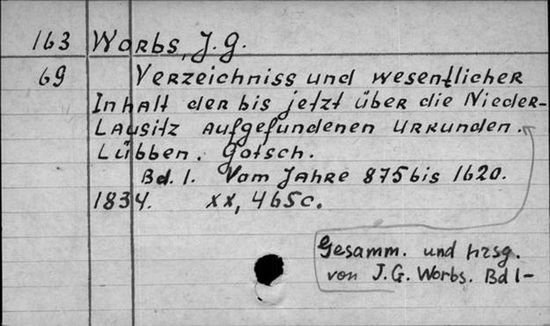 163 Worbs, J. G.
69 Verzeichniss und wesentlicher
Inhalt der bis jetzt über die Nieder-
Lausitz aufgefundenen Urkunden.
Lübben. Gotsch.
Bd. 1. Vom Jahre 875 bis 1620.
1834. XX, 465 c.
Gesamm. und hrsg.
von J. G. Worbs. Bd 1-